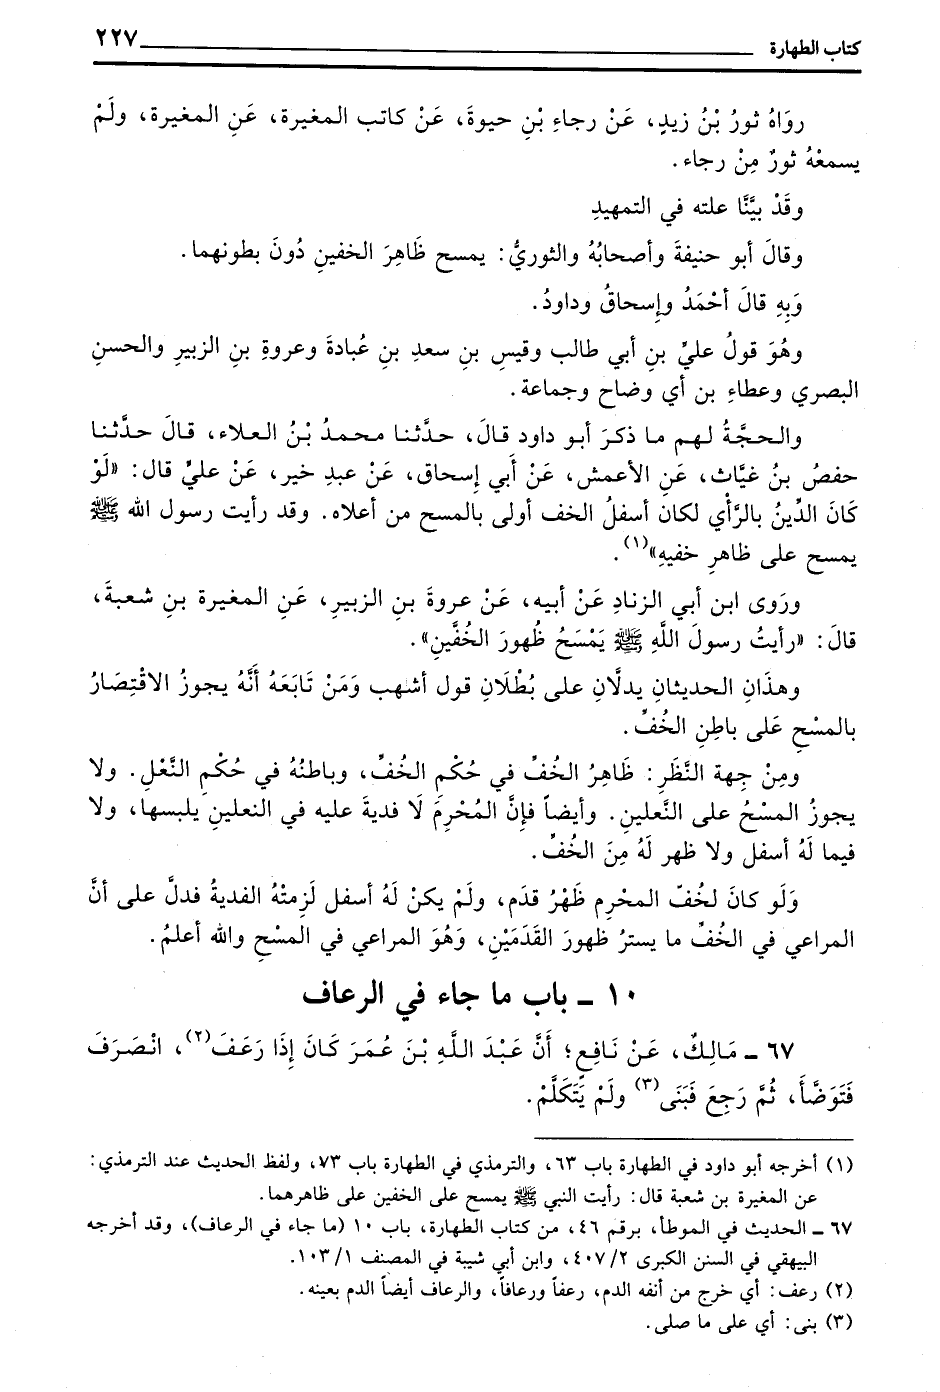 كتاب الطهارة ٢٢٧
رواهُ ثورُ بْنُ زيدٍ، عَنْ رجاءِ بْنِ حيوةَ، عَنْ كاتب المغيرة، عَنِ المغيرة، ولَمْ
يسمعْهُ ثورٌ مِنْ رجاء.
وقَدْ بيَّنَّا علته في التمهيدِ
وقالَ أبو حنيفةَ وأصحابُهُ والثوريُّ: يمسح ظَاهِرَ الخفينِ دُونَ بطونهما.
وَبِهِ قالَ أحْمَدُ وإسحاقُ وداودُ.
وهُوَ قولُ عليِّ بنِ أبي طالب وقيسِ بنِ سعدِ بنِ عُبادةَ وعروةِ بنِ الزبيرِ والحسنِ
البصري وعطاءِ بن أي وضاح وجماعة.
والحجَّةُ لهم ما ذكرَ أبو داود قالَ، حدَّثنا محمدُ بْنُ العلاء، قالَ حدَّثنا
حفصُ بنُ غيَّاث، عَنِ الأعمش، عَنْ أَبي إسحاق، عَنْ عبدِ خير، عَنْ عليٍّ قال: «لَوْ
كَانَ الدِّينُ بالرَّأْي لكان أسفلُ الخف أولى بالمسح من أعلاه. وقد رأيت رسول الله ﷺ
يمسح على ظاهرِ خفيهِ»(١).
ورَوى ابن أبي الزنادِ عَنْ أبيه، عَنْ عروةَ بنِ الزبيرِ، عَنِ المغيرة بنِ شعبةَ،
قالَ: «رأيتُ رسولَ اللَّهِ ﷺ يَمْسَحُ ظُهورَ الخُفَّينِ».
وهذَانِ الحديثانِ يدلَّانِ على بُطْلَانِ قول أشهب وَمَنْ تَابَعَهُ أنَّهُ يجوزُ الاقْتِصَارُ
بالمسْحِ عَلى باطِنِ الخُفِّ.
ومِنْ جِهة النَّظَرِ: ظَاهِرُ الخُفِّ في حُكْم الخُفِّ، وباطنُهُ في حُكْمِ النَّعْلِ. ولا
يجوزُ المسْحُ على النَّعلينِ. وأيضاً فإنَّ المُحْرِمَ لَا فديةَ عليه في النعلينِ يلبسها، ولا
فيما لَهُ أسفل ولا ظهر لَهُ مِنَ الخُفِّ.
وَلَو كانَ لخُفّ المحْرِم ظَهْرُ قدَم، ولَمْ يكنْ لَهُ أسفل لَزِمتْهُ الفديةُ فدلَّ على أنَّ
المراعي في الخُفِّ ما يسترُ ظهورَ القَدَمَيْنِ، وَهُوَ المراعي في المسْحِ والله أعلمُ.
١٠ ـ باب ما جاء في الرعاف
٦٧ ـ مَالِكٌ، عَنْ نَافِعٍ؛ أَنَّ عَبْدَ اللَّهِ بْنَ عُمَرَ كَانَ إِذَا رَعَفَ(٢)، انْصَرَفَ
فَتَوَضَّأَ، ثُمَّ رَجِعَ فَبَنَى(٣) ولَمْ يَتَكَلَّمْ.
(١) أخرجه أبو داود في الطهارة باب ٦٣، والترمذي في الطهارة باب ٧٣، ولفظ الحديث عند الترمذي:
عن المغيرة بن شعبة قال: رأيت النبي ﷺ يمسح على الخفين على ظاهرهما.
٦٧ ـ الحديث في الموطأ، برقم ٤٦، من كتاب الطهارة، باب ١٠ (ما جاء في الرعاف)، وقد أخرجه
البيهقي في السنن الكبرى ٤٠٧/٢، وابن أبي شيبة في المصنف ١٠٣/١.
(٢) رعف: أي خرج من أنفه الدم، رعفاً ورعافاً، والرعاف أيضاً الدم بعينه.
(٣) بنى: أي على ما صلى.